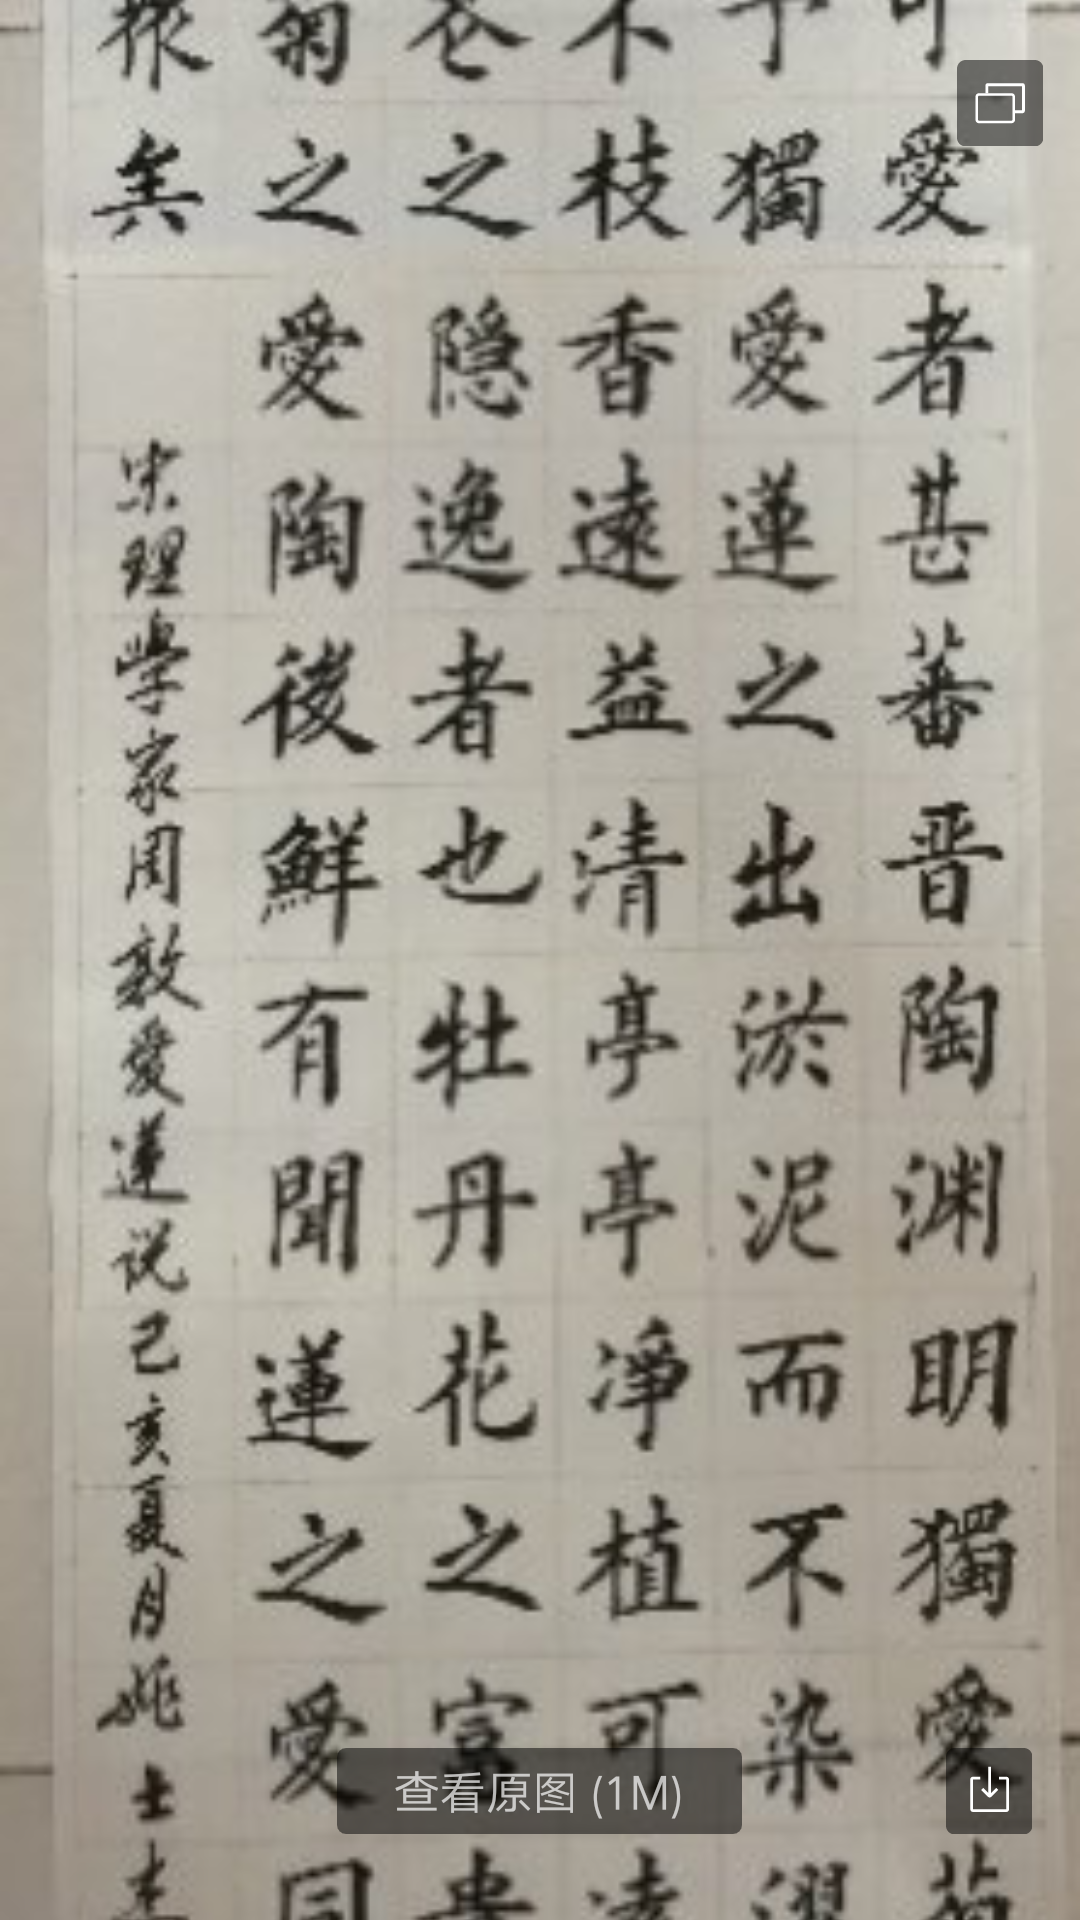 可愛者甚蕃晋陶渊眀獨愛菊
予獨愛蓮之出淤泥而不染濯
不枝香遠益清亭亭凈植可遠
之隐逸者也牡丹花之富貴
菊之愛陶後鮮有聞蓮之愛同
衆矣
宋理學家周敦愛蓮说己亥夏月姚士杰
查看原图 (1M)